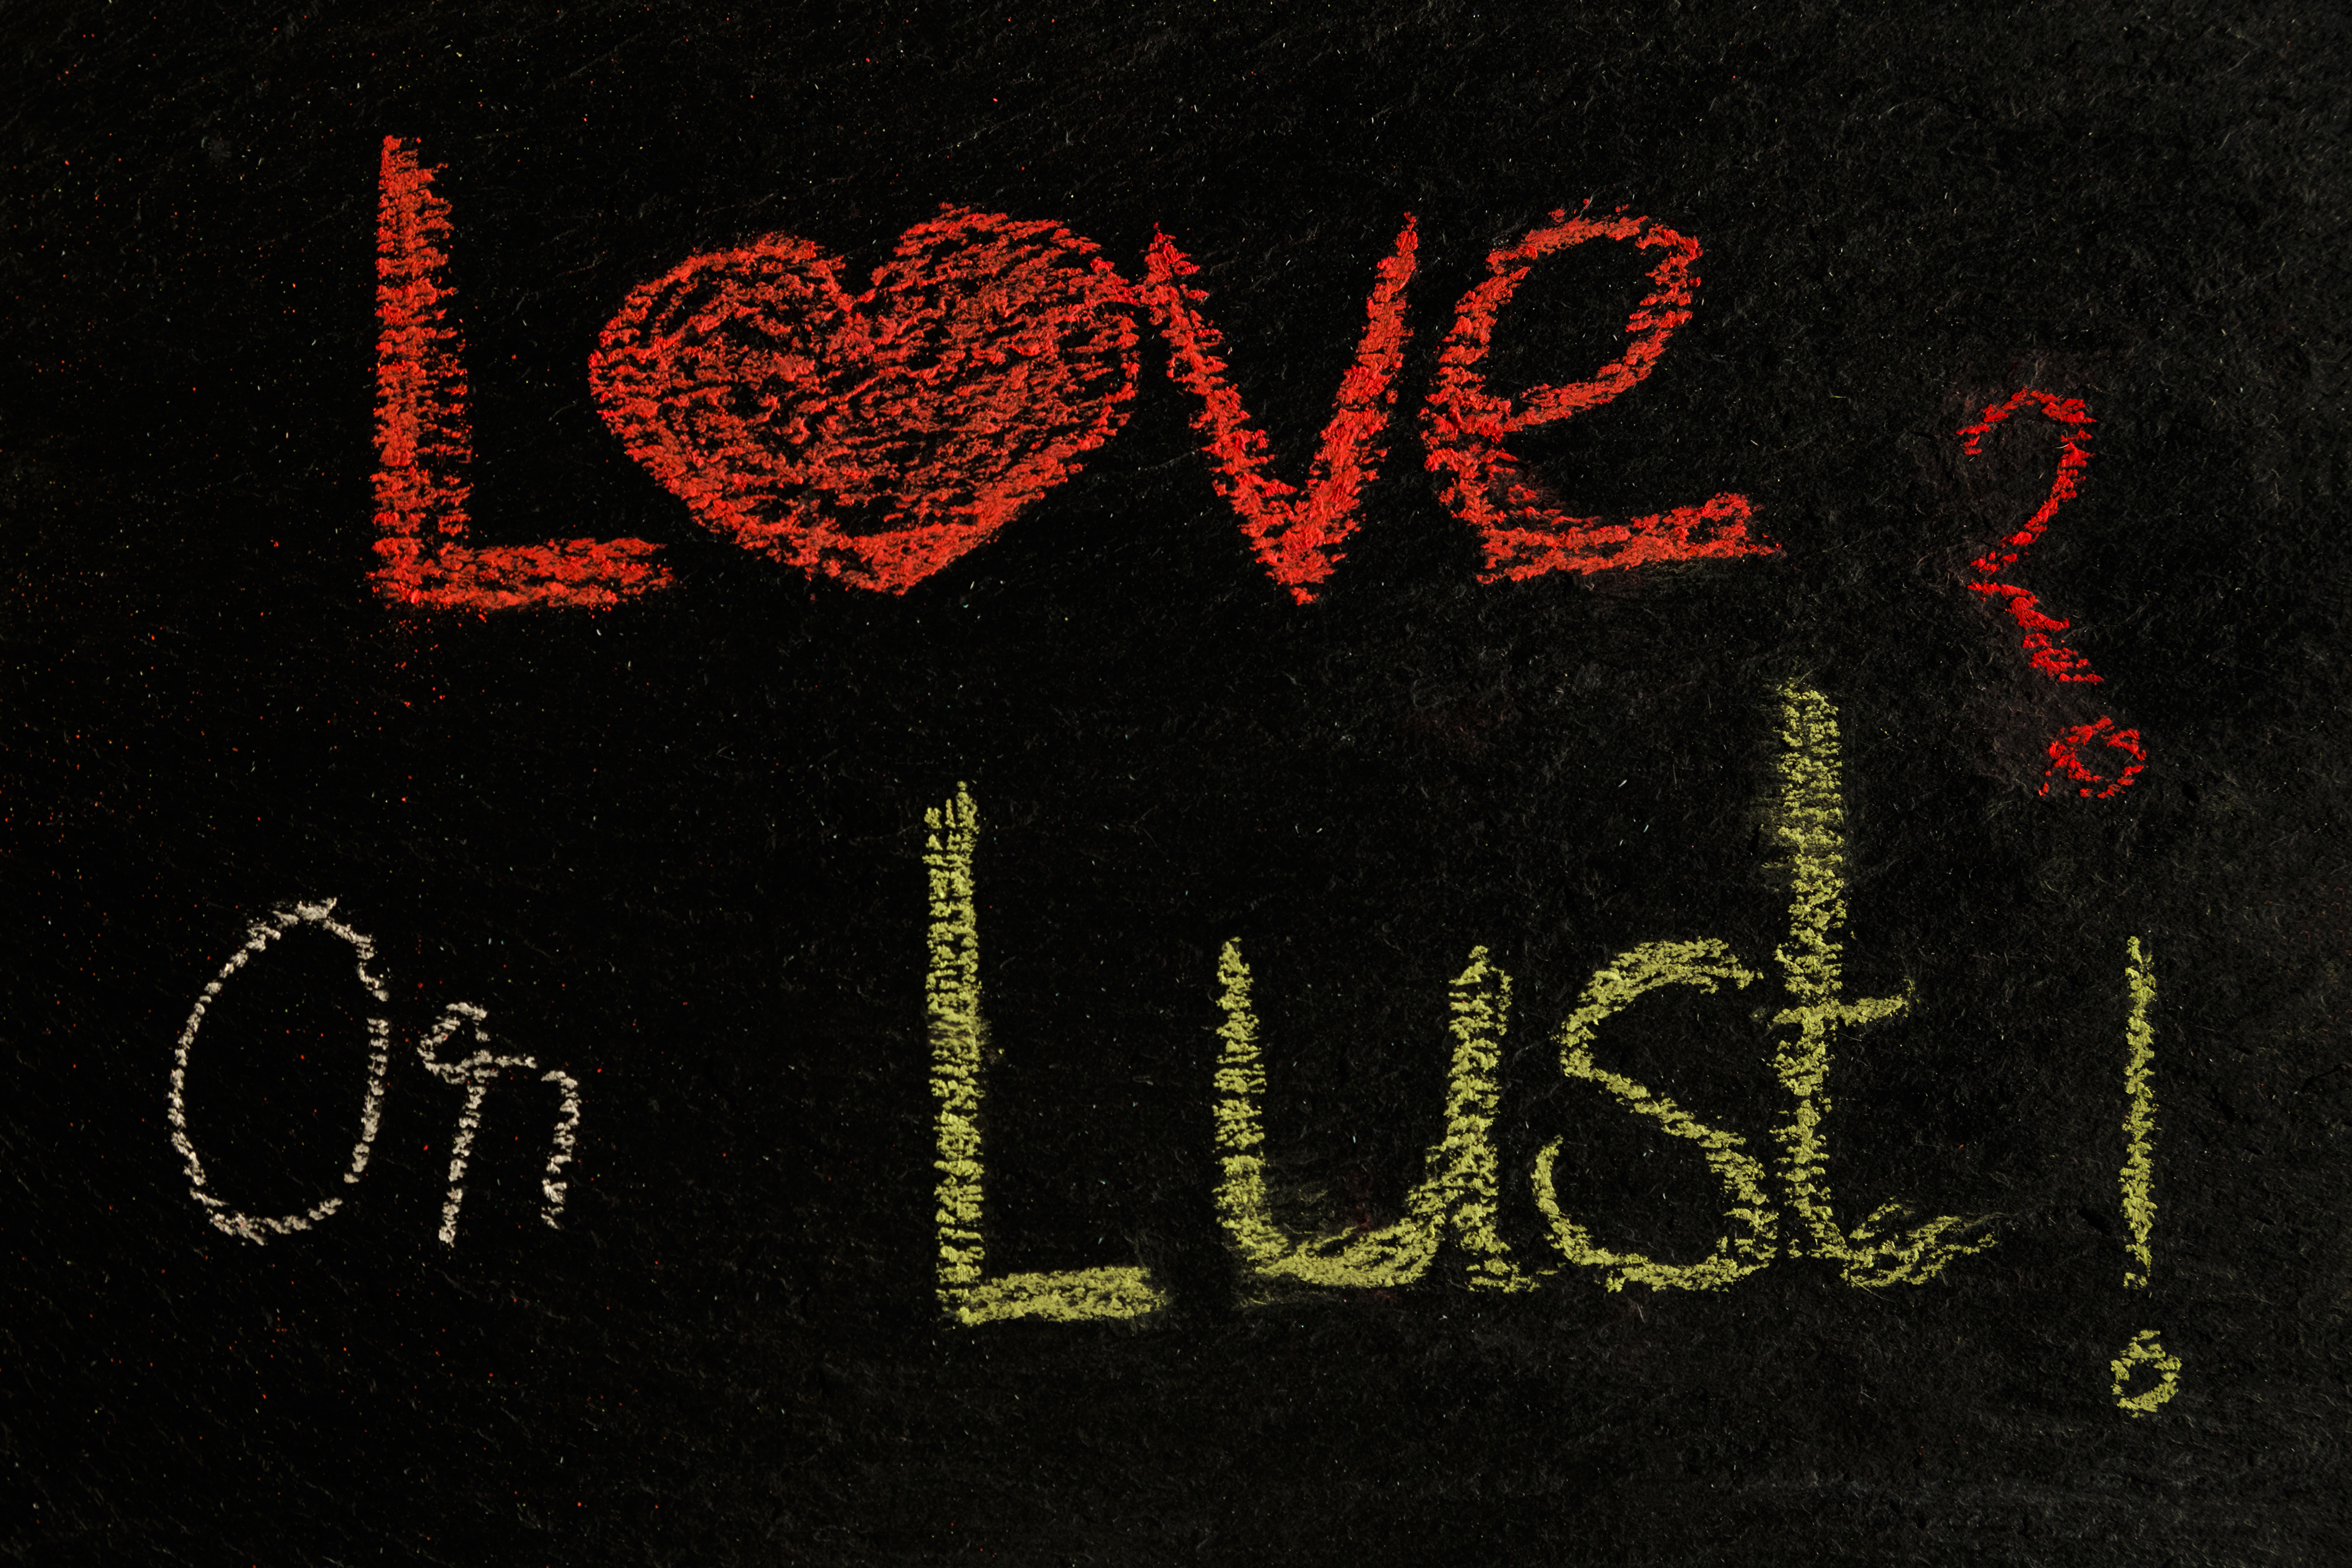 Love ?
Or Lust !